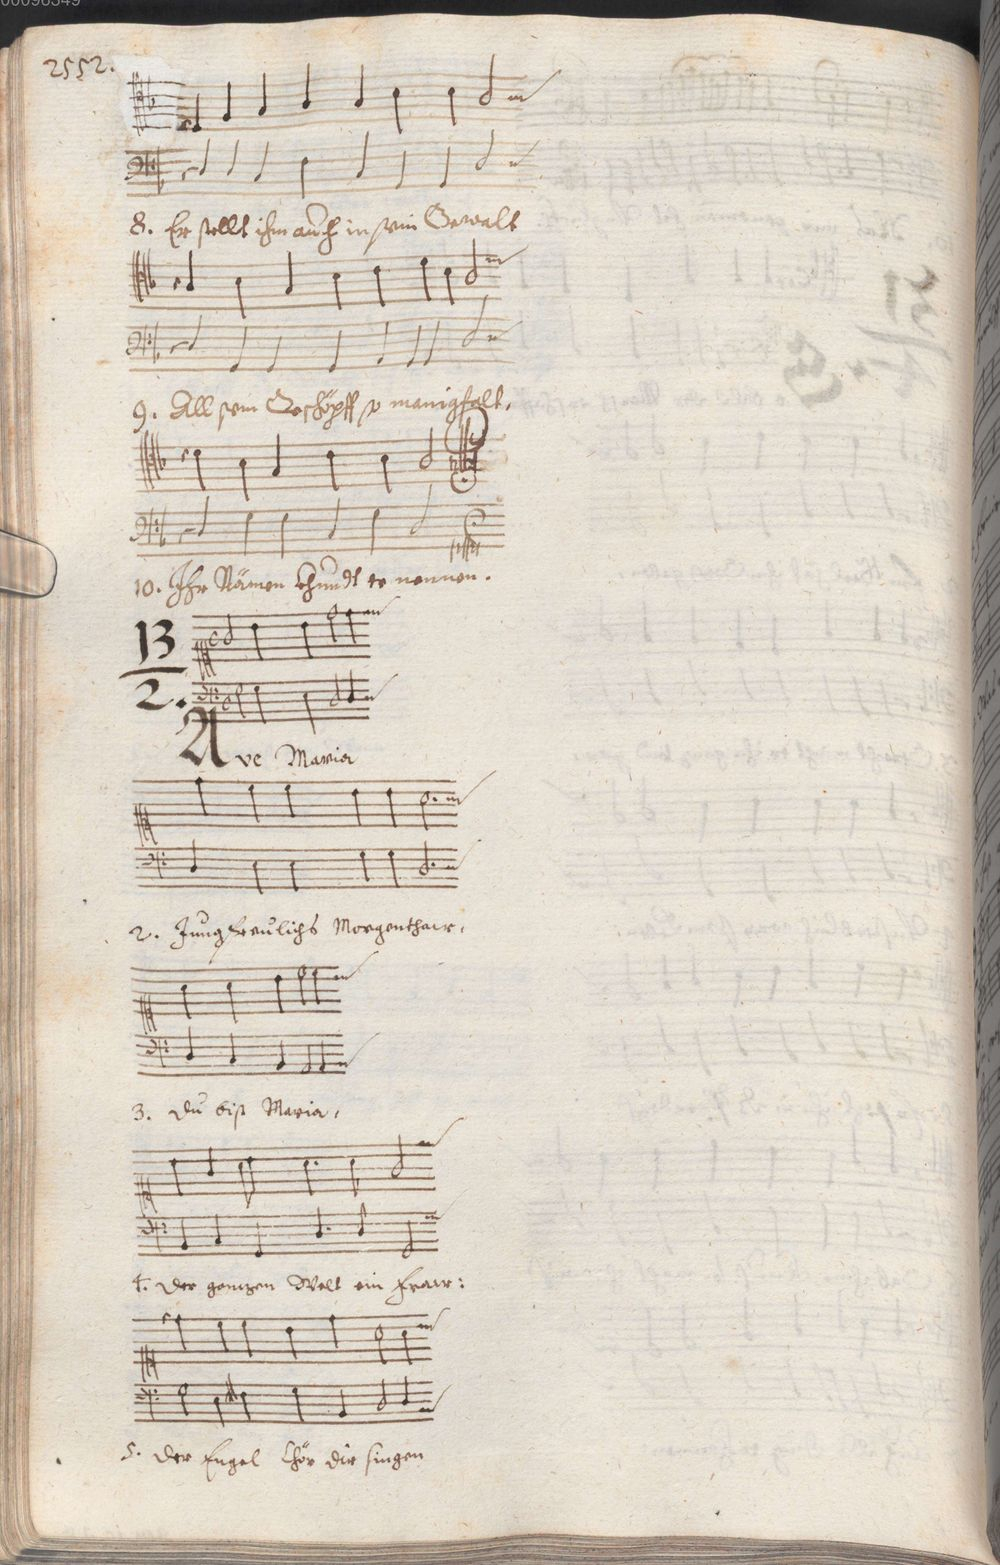 00096349
2552.
8. Er stellt ihm auch in sein Gewalt
9. All sein Geschöpff so manigfalt,
10. Ihr Nämen khundt er nennen.
13
2.
Ave Maria
2. Jungfreulichs Morgenthaw,
3. Du bist Maria,
4. Der gantzen Welt ein Fraw:
5. Der Engel Chör dir singen